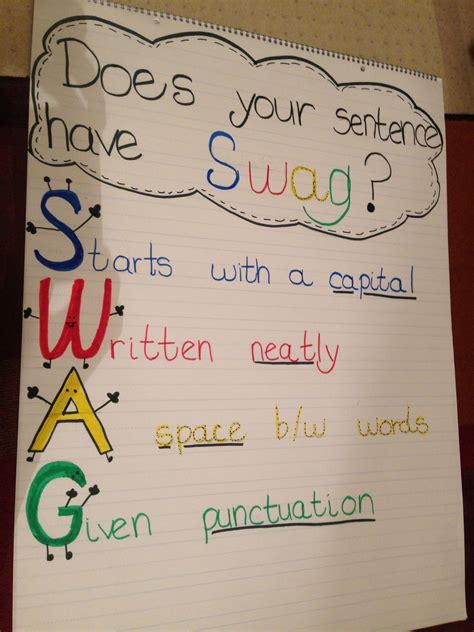 Does your sentence
have Swag?
Starts with a capital
Written neatly
A space b/w words
Given punctuation